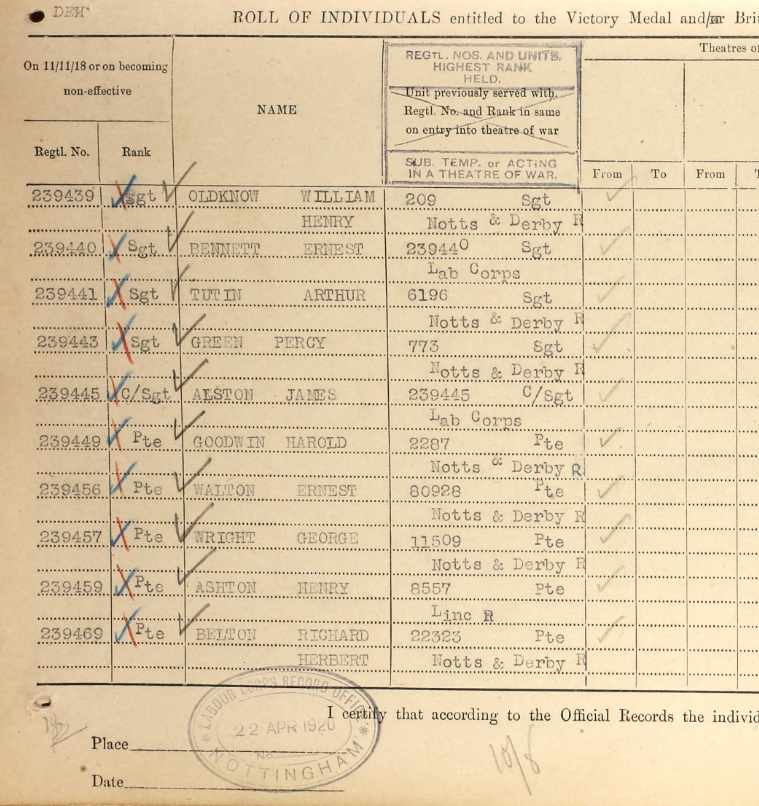 DEH
ROLL OF INDIVIDUALS entitled to the Victory Medal and/or Brit
Theatres of
On 11/11/18 or on becoming non-effective
NAME
REGTL. NOS. AND UNITS.
HIGHEST RANK
HELD.
Unit previously served with.
Regtl. No. and Rank in same
on entry into theatre of war
SUB. TEMP. or ACTING
IN A THEATRE OF WAR.
Regtl. No. Rank From To From T
239439 Sgt OLDKNOW WILLIAM 209 Sgt
HENRY Notts & Derby R
239440 Sgt BENNETT ERNEST 239440 Sgt
Lab Corps
239441 Sgt TUTIN ARTHUR 6196 Sgt
Notts & Derby R
239443 Sgt GREEN PERCY 773 Sgt
Notts & Derby R
239445 C/Sgt ALSTON JAMES 239445 C/Sgt
Lab Corps
239449 Pte GOODWIN HAROLD 2287 Pte
Notts & Derby R
239456 Pte WALTON ERNEST 80928 Pte
Notts & Derby R
239457 Pte WRIGHT GEORGE 11509 Pte
Notts & Derby R
239459 Pte ASHTON HENRY 8557 Pte
Linc R
239469 Pte BELTON RICHARD 22323 Pte
HERBERT Notts & Derby R
LABOUR CORPS RECORD OFFICE
22 APR 1920
No.
NOTTINGHAM
I certify that according to the Official Records the individ
Place
10/8
Date